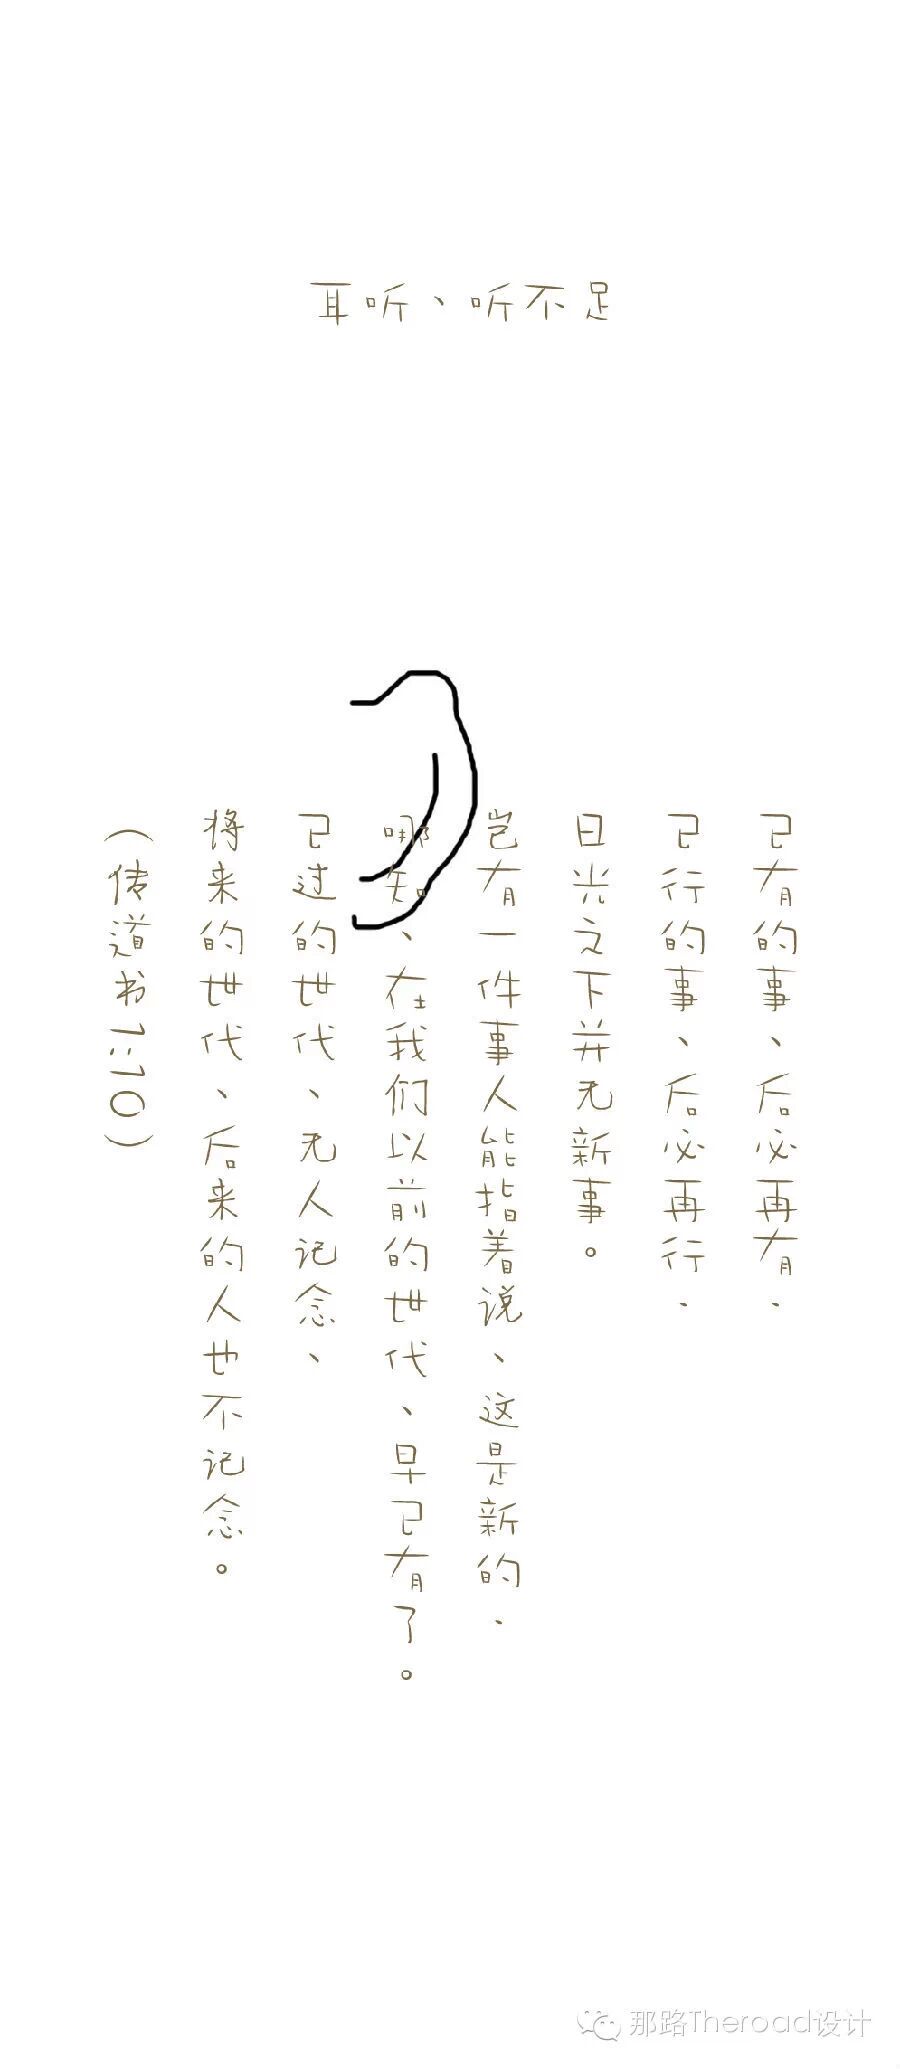 耳听、听不足
已有的事、后必再有．
已行的事、后必再行．
日光之下并无新事。
岂有一件事人能指着说、这是新的．
哪知、在我们以前的世代、早已有了。
已过的世代、无人记念、
将来的世代、后来的人也不记念。
（传道书1:10）
那路Theroad设计